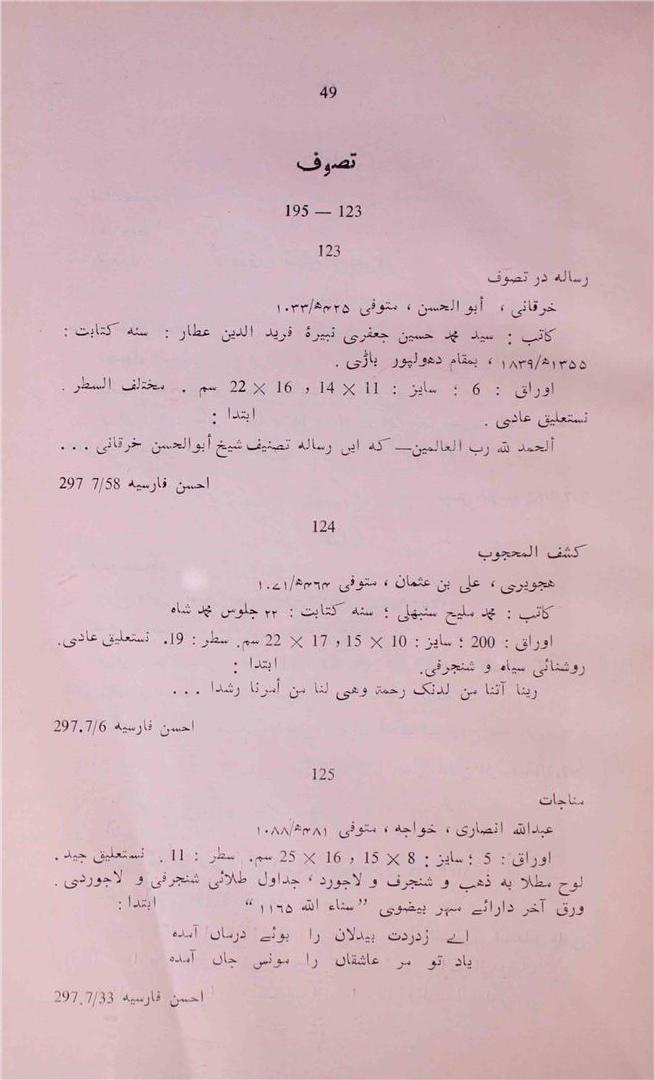 49
تصوف
123 — 195
123
رساله در تصوف
خرقانی ، أبو الحسن ، متوفی ۴۲۵ھ/۱۰۳۳
کاتب : سید محمد حسین جعفری نبیرۂ فرید الدین عطار : سنه کتابت :
۱۳۵۵ھ/۱۸۳۹ ، بمقام دھولپور باڑی .
اوراق : 6 ؛ سایز : 11 × 14 و 16 × 22 سم . مختلف السطر .
نستعلیق عادی . ابتدا :
ألحمد لله رب العالمین— که این رساله تصنیف شیخ أبوالحسن خرقانی ...
احسن فارسیه 297 7/58
124
کشف المحجوب
هجویری ، علی بن عثمان ، متوفی ۴۶۴ھ/۱۰۷۱
کاتب : محمد ملیح سنبھلی ؛ سنه کتابت : ۲۲ جلوس محمد شاه
اوراق : 200 ؛ سایز : 10 × 15 و 17 × 22 سم. سطر : 19. نستعلیق عادی.
روشنائی سیاه و شنجرفی. ابتدا :
ربنا آتنا من لدنک رحمة وهیی لنا من أمرنا رشدا ...
احسن فارسیه 297.7/6
125
مناجات
عبدالله انصاری ، خواجه ، متوفی ۴۸۱ھ/۱۰۸۸
اوراق : 5 ؛ سایز : 8 × 15 و 16 × 25 سم. سطر : 11 . نستعلیق جید .
لوح مطلا به ذهب و شنجرف و لاجورد ، جداول طلائی شنجرفی و لاجوردی .
ورق آخر دارائے مهر بیضوی ”سناء الله ۱۱۶۵“ ابتدا :
اے زدردت بیدلان را بوئے درماں آمده
یاد تو مر عاشقاں را مونس جاں آمده
احسن فارسیه 297.7/33